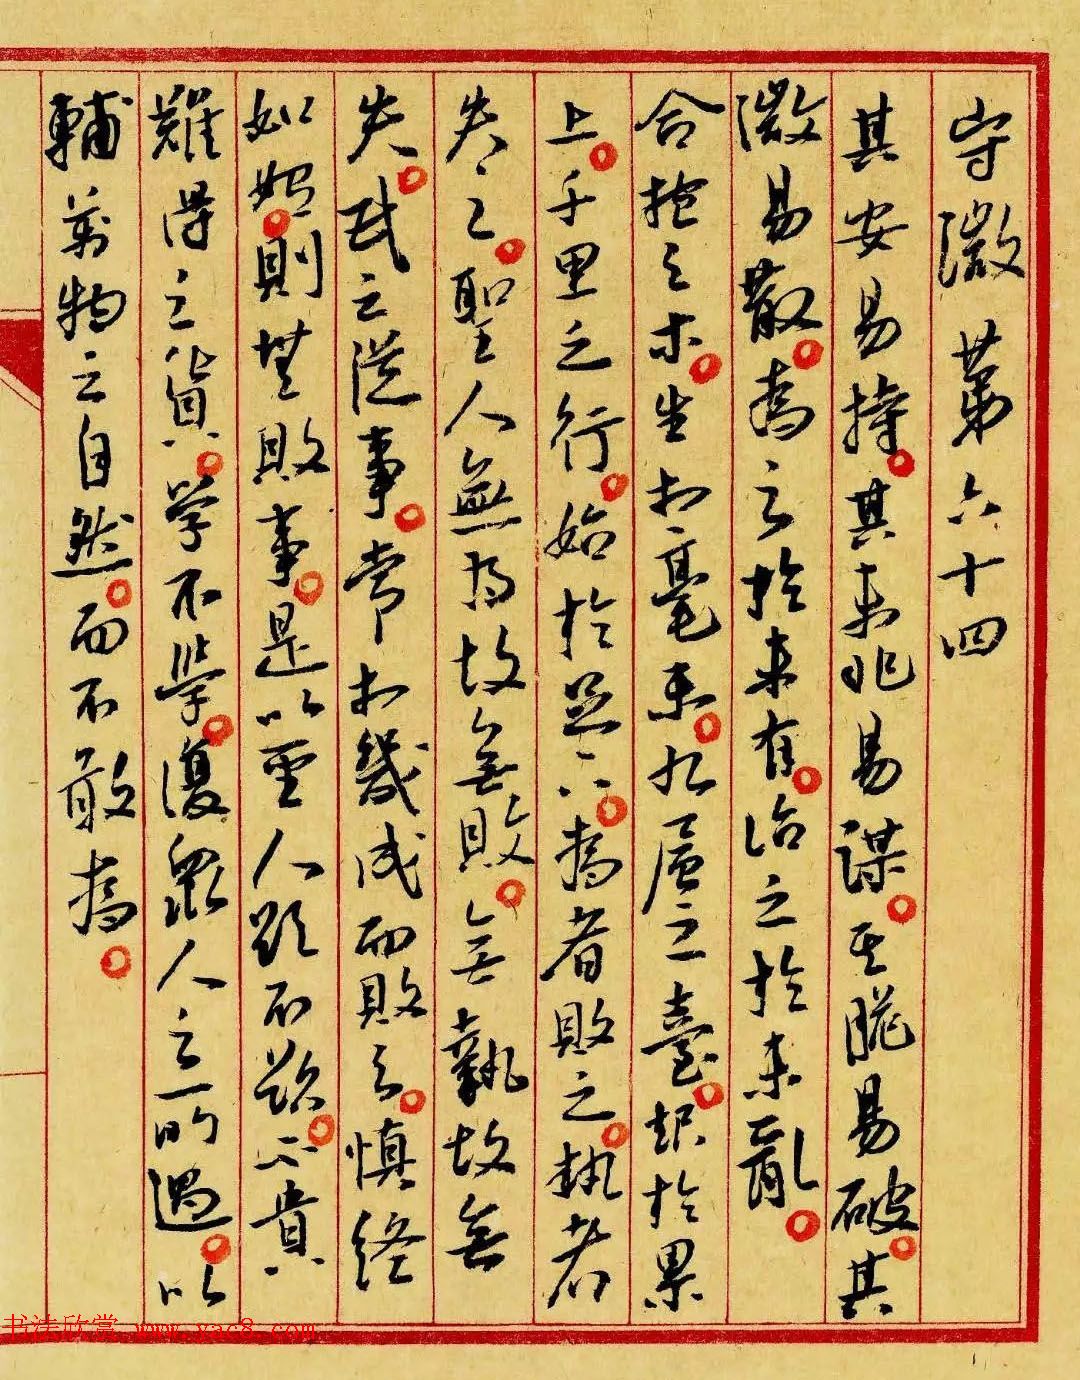 守微 第六十四
其安易持。其未兆易謀。其脆易破。其
微易散。為之於未有。治之於未亂。
合抱之木。生於毫末。九層之臺。起於累
上。千里之行。始於足下。為者敗之。執者
失之。聖人無為故無敗。無執故無
失。民之從事。常於幾成而敗之。慎終
如始。則無敗事。是以聖人欲不欲。不貴
難得之貨。学不學。復眾人之所過。以
輔萬物之自然。而不敢為。
书法欣赏 www.yac8.com